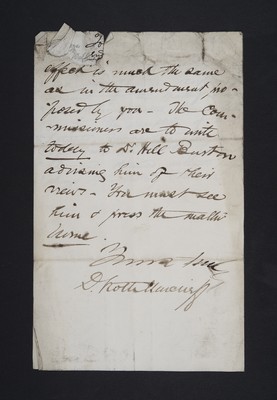 effect is much the same
as in the amendment pro-
posed by you - The Com-
-missioners are to write
today to Dr Hill Burton
advising him of their
views - You must see
him & press the matter
home.
Yours truly